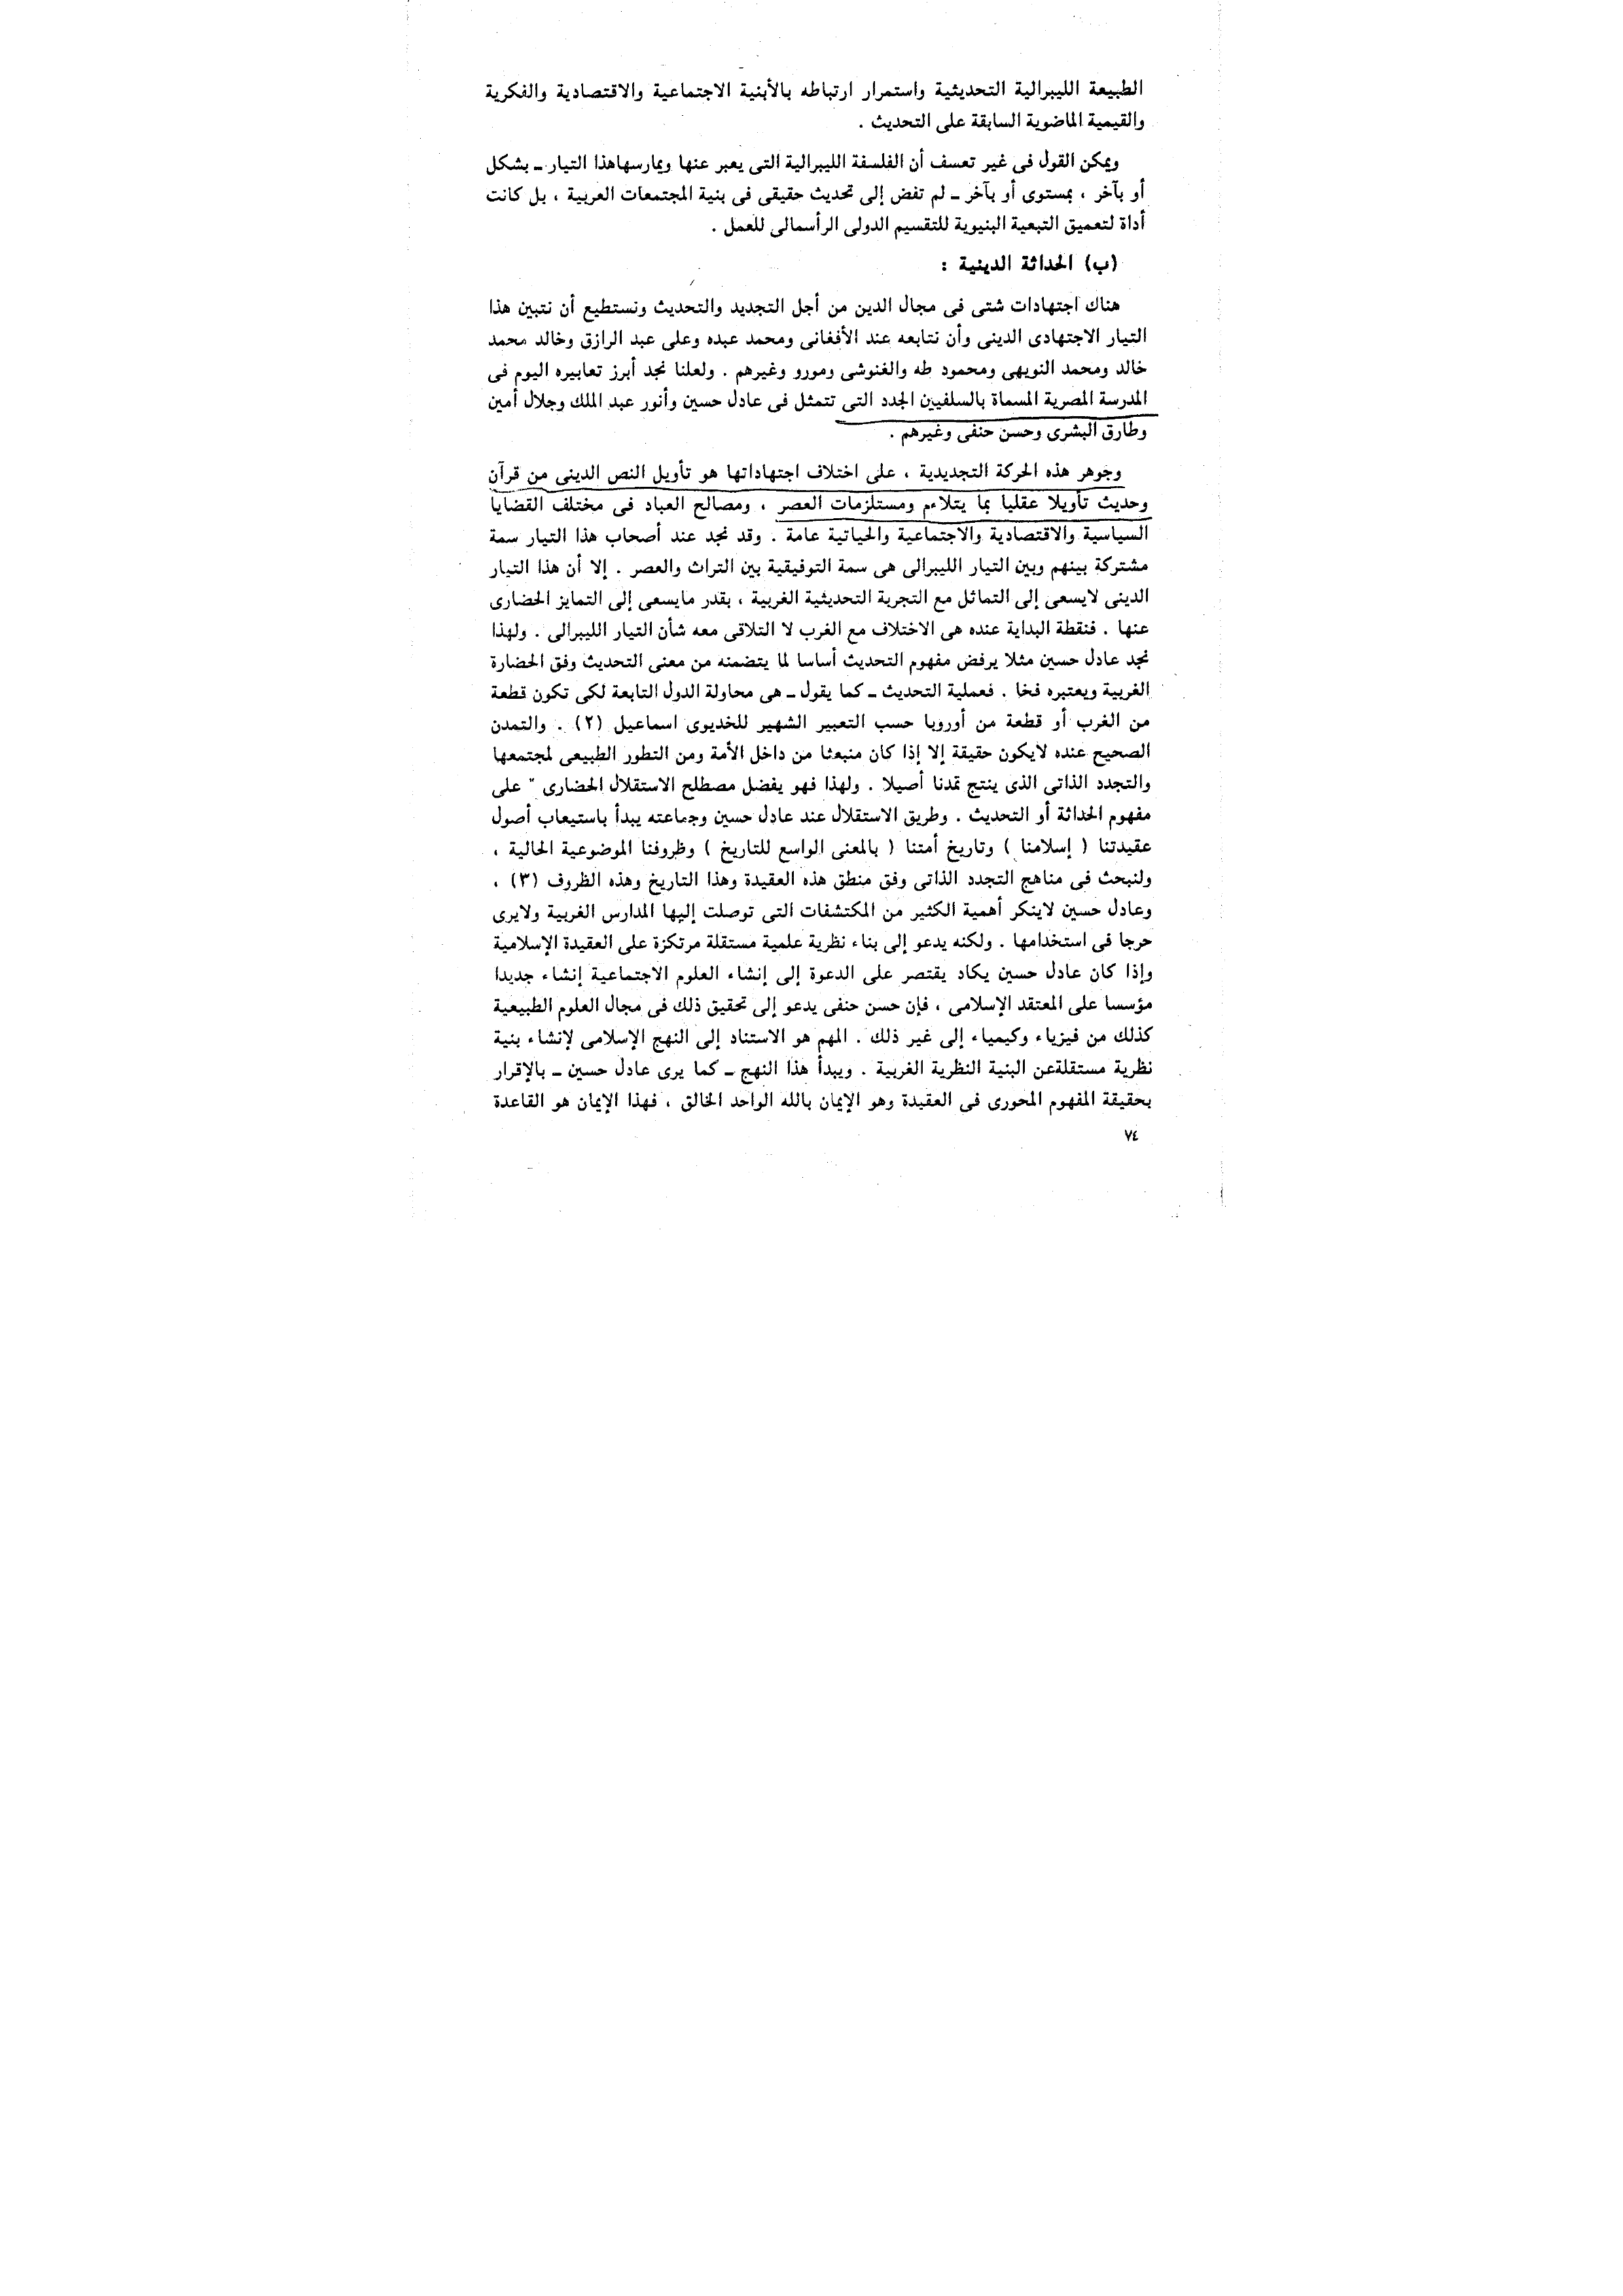 الطبيعة الليبرالية التحديثية واستمرار ارتباطه بالأبنية الاجتماعية والاقتصادية والفكرية
والقيمية الماضوية السابقة على التحديث .
ويمكن القول فى غير تعسف أن الفلسفة الليبرالية التى يعبر عنها ويمارسهاهذا التيار ـ بشكل
أو بآخر ، بمستوى أو بآخر ـ لم تفض إلى تحديث حقيقى فى بنية المجتمعات العربية ، بل كانت
أداة لتعميق التبعية البنيوية للتقسيم الدولى الرأسمالى للعمل .
(ب) الحداثة الدينية :
هناك اجتهادات شتى فى مجال الدين من أجل التجديد والتحديث ونستطيع أن نتبين هذا
التيار الاجتهادى الدينى وأن نتابعه عند الأفغانى ومحمد عبده وعلى عبد الرازق وخالد محمد
خالد ومحمد النويهى ومحمود طه والغنوشى ومورو وغيرهم . ولعلنا نجد أبرز تعابيره اليوم فى
المدرسة المصرية المسماة بالسلفيين الجدد التى تتمثل فى عادل حسين وأنور عبد الملك وجلال أمين
وطارق البشرى وحسن حنفى وغيرهم .
وجوهر هذه الحركة التجديدية ، على اختلاف اجتهاداتها هو تأويل النص الدينى من قرآن
وحديث تأويلا عقليا بما يتلاءم ومستلزمات العصر ، ومصالح العباد فى مختلف القضايا
السياسية والاقتصادية والاجتماعية والحياتية عامة . وقد نجد عند أصحاب هذا التيار سمة
مشتركة بينهم وبين التيار الليبرالى هى سمة التوفيقية بين التراث والعصر . إلا أن هذا التيار
الدينى لايسعى إلى التماثل مع التجربة التحديثية الغربية ، بقدر مايسعى إلى التمايز الحضارى
عنها . فنقطة البداية عنده هى الاختلاف مع الغرب لا التلاقى معه شأن التيار الليبرالى . ولهذا
نجد عادل حسين مثلا يرفض مفهوم التحديث أساسا لما يتضمنه من معنى التحديث وفق الحضارة
الغربية ويعتبره فخا . فعملية التحديث ـ كما يقول ـ هى محاولة الدول التابعة لكى تكون قطعة
من الغرب أو قطعة من أوروبا حسب التعبير الشهير للخديوى اسماعيل (٢) . والتمدن
الصحيح عنده لايكون حقيقة إلا إذا كان منبعثا من داخل الأمة ومن التطور الطبيعى لمجتمعها
والتجدد الذاتى الذى ينتج تمدنا أصيلا . ولهذا فهو يفضل مصطلح الاستقلال الحضارى " على
مفهوم الحداثة أو التحديث . وطريق الاستقلال عند عادل حسين وجماعته يبدأ باستيعاب أصول
عقيدتنا ( إسلامنا ) وتاريخ أمتنا ( بالمعنى الواسع للتاريخ ) وظروفنا الموضوعية الحالية ،
ولنبحث فى مناهج التجدد الذاتى وفق منطق هذه العقيدة وهذا التاريخ وهذه الظروف (٣) ،
وعادل حسين لاينكر أهمية الكثير من المكتشفات التى توصلت إليها المدارس الغربية ولايرى
حرجا فى استخدامها . ولكنه يدعو إلى بناء نظرية علمية مستقلة مرتكزة على العقيدة الإسلامية
وإذا كان عادل حسين يكاد يقتصر على الدعوة إلى إنشاء العلوم الاجتماعية إنشاء جديدا
مؤسسا على المعتقد الإسلامى ، فإن حسن حنفى يدعو إلى تحقيق ذلك فى مجال العلوم الطبيعية
كذلك من فيزياء وكيمياء إلى غير ذلك . المهم هو الاستناد إلى النهج الإسلامى لإنشاء بنية
نظرية مستقلةعن البنية النظرية الغربية . ويبدأ هذا النهج ـ كما يرى عادل حسين ـ بالإقرار
بحقيقة المفهوم المحورى فى العقيدة وهو الإيمان بالله الواحد الخالق ، فهذا الإيمان هو القاعدة
٧٤